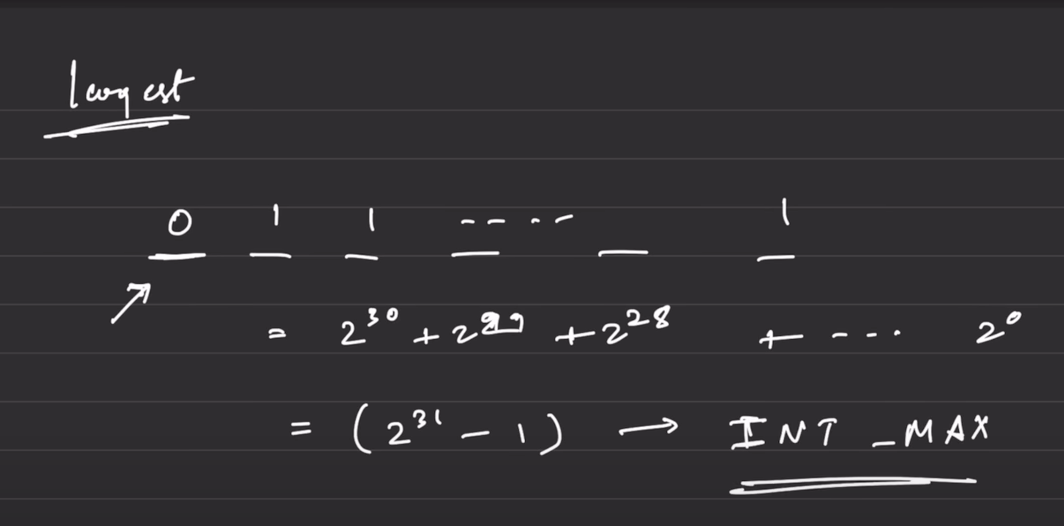 largest
0 1 1 ---- 1
= 2^30 + 2^29 + 2^28 + ---. 2^0
= (2^31 - 1) → INT_MAX